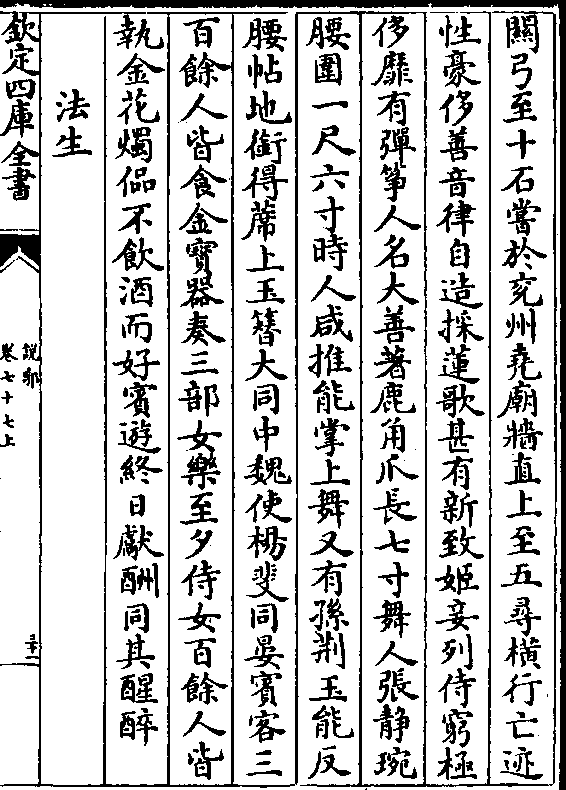 闗弓至十石嘗於兖州堯廟牆直上至五尋橫行亡迹
性豪侈善音律自造採蓮歌甚有新致姬妾列侍窮極
侈靡有彈箏人名大善著鹿角爪長七寸舞人張靜琬
腰圍一尺六寸時人咸推能掌上舞又有孫荆玉能反
腰帖地銜得蓆上玉簪大同中魏使楊斐同宴賓客三
百餘人皆食金寶器奏三部女樂至夕侍女百餘人皆
執金花燭偘不飲酒而好賓遊終日獻酬同其醒醉
法生
欽定四庫全書
說郛
卷七十七上
三十二